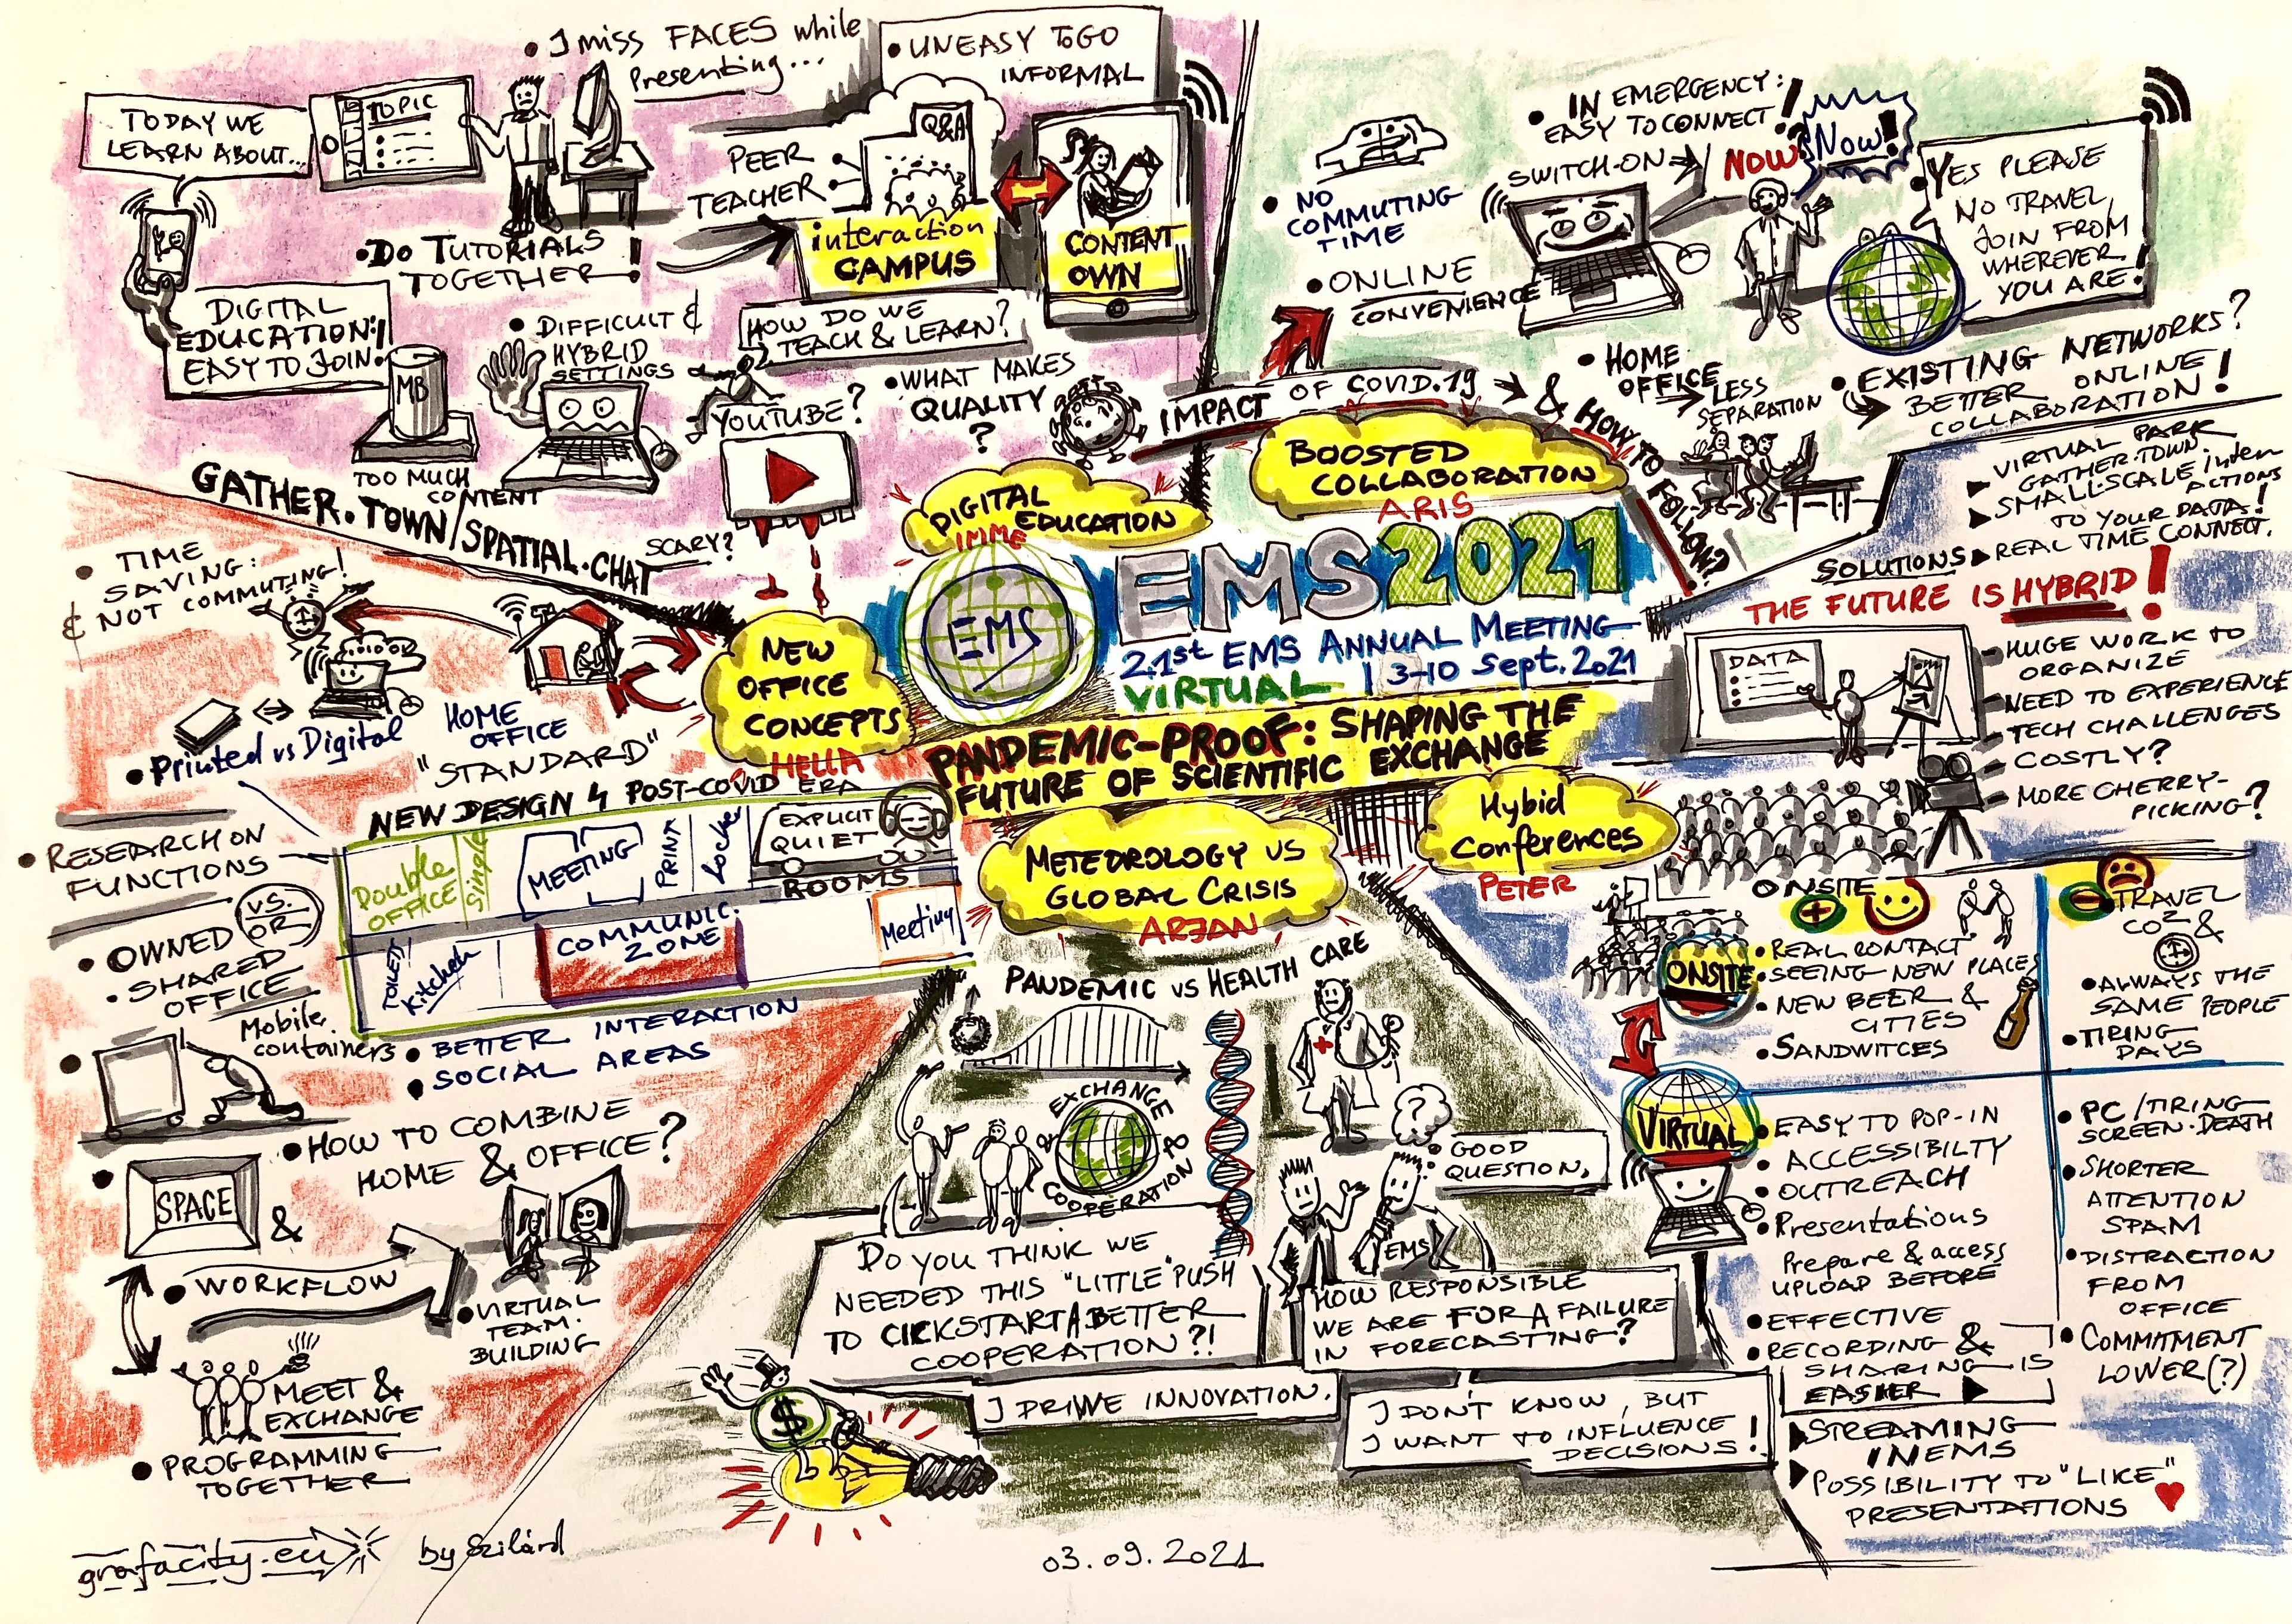 • I miss FACES while
Presenting...
• UNEASY TO GO
INFORMAL
TODAY WE
LEARN ABOUT...
TOPIC
Q&A
PEER
TEACHER
interaction
CAMPUS
CONTENT
OWN
• DO TUTORIALS
TOGETHER!
DIGITAL
EDUCATION!
EASY TO JOIN!
MB
TOO MUCH
CONTENT
• DIFFICULT &
HYBRID
SETTINGS
HOW DO WE
TEACH & LEARN?
YOUTUBE?
• WHAT MAKES
QUALITY
?
SCARY?
DIGITAL
EDUCATION
IMME
IMPACT OF COVID.19 → & HOW TO FOLLOW?
• NO
COMMUTING
TIME
• ONLINE
CONVENIENCE
• IN EMERGENCY:
EASY TO CONNECT!
SWITCH-ON → NOW?
Now!
YES PLEASE
NO TRAVEL,
JOIN FROM
WHEREVER
YOU ARE!
• HOME
OFFICE
→ LESS
SEPARATION
• EXISTING NETWORKS?
→ BETTER ONLINE
COLLABORATION!
BOOSTED
COLLABORATION
ARIS
EMS
EMS2021
21st EMS ANNUAL MEETING
VIRTUAL | 3-10 Sept. 2021
PANDEMIC-PROOF: SHAPING THE
FUTURE OF SCIENTIFIC EXCHANGE
GATHER.TOWN/SPATIAL.CHAT
• TIME
SAVING:
& NOT COMMUTING!
• Printed vs Digital
HOME
OFFICE
"STANDARD"
NEW
OFFICE
CONCEPTS
HELLA
NEW DESIGN 4 POST-COVID ERA
Double
OFFICE
Single
MEETING
PRINT
EXPLICIT
QUIET
ROOMS
TOILETS
Kitchen
COMMUNIC.
ZONE
Meeting
• RESEARCH ON
FUNCTIONS
VS.
OR
• OWNED
• SHARED
OFFICE
Mobile
containers
• BETTER INTERACTION
• SOCIAL AREAS
• HOW TO COMBINE
HOME & OFFICE?
• SPACE
&
• WORKFLOW
• VIRTUAL
TEAM.
BUILDING
MEET &
EXCHANGE
• PROGRAMMING
TOGETHER
METEOROLOGY VS
GLOBAL CRISIS
ARJAN
PANDEMIC VS HEALTH CARE
EXCHANGE
&
COOPERATION
TO
?
• GOOD
QUESTION,
EMS
DO YOU THINK WE
NEEDED THIS "LITTLE" PUSH
TO CICKSTART A BETTER
COOPERATION?!
HOW RESPONSIBLE
WE ARE FOR A FAILURE
IN FORECASTING?
$
I DRIVVE INNOVATION.
I DON'T KNOW, BUT
I WANT TO INFLUENCE
DECISIONS!
Hybid
Conferences
PETER
► VIRTUAL PARK
GATHER.TOWN
► SMALL-SCALE inter
actions
TO YOUR DATA!
SOLUTIONS ► REAL TIME CONNECT.
THE FUTURE IS HYBRID!
DATA
- HUGE WORK TO
ORGANIZE
- NEED TO EXPERIENCE
- TECH CHALLENGES
- COSTLY?
- MORE CHERRY-
PICKING?
ONSITE
+
-
ONSITE
• REAL CONTACT
• SEEING NEW PLACES
• NEW BEER &
CITIES
• SANDWITCES
• TRAVEL
CO2 &
• ALWAYS THE
SAME PEOPLE
• TIRING
DAYS
VIRTUAL
• EASY TO POP-IN
• ACCESSIBILTY
• OUTREACH
• Presentations
Prepare & access
UPLOAD BEFORE
• EFFECTIVE
• RECORDING &
SHARING IS
EASIER ►
► STREAMING
IN EMS
► POSSIBILITY TO "LIKE"
PRESENTATIONS
• PC/TIRING
SCREEN.DEATH
• SHORTER
ATTENTION
SPAM
• DISTRACTION
FROM
OFFICE
• COMMITMENT
LOWER(?)
grafacity.eu by Szilárd
03.09.2021